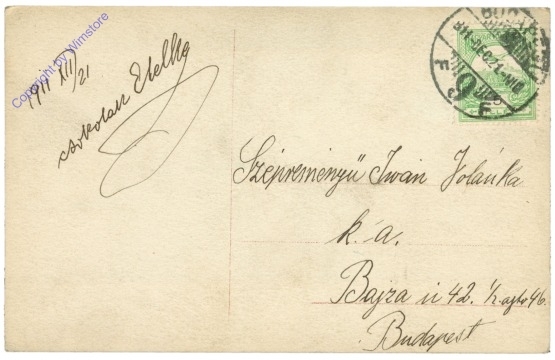 1911 XII/21
Copyright by Wimstore
csokolak Etelka
Szépreményű Iván Jolánka
k. a.
Bajza u 42. ½. ajtó 46.
Budapest
BUDAPEST